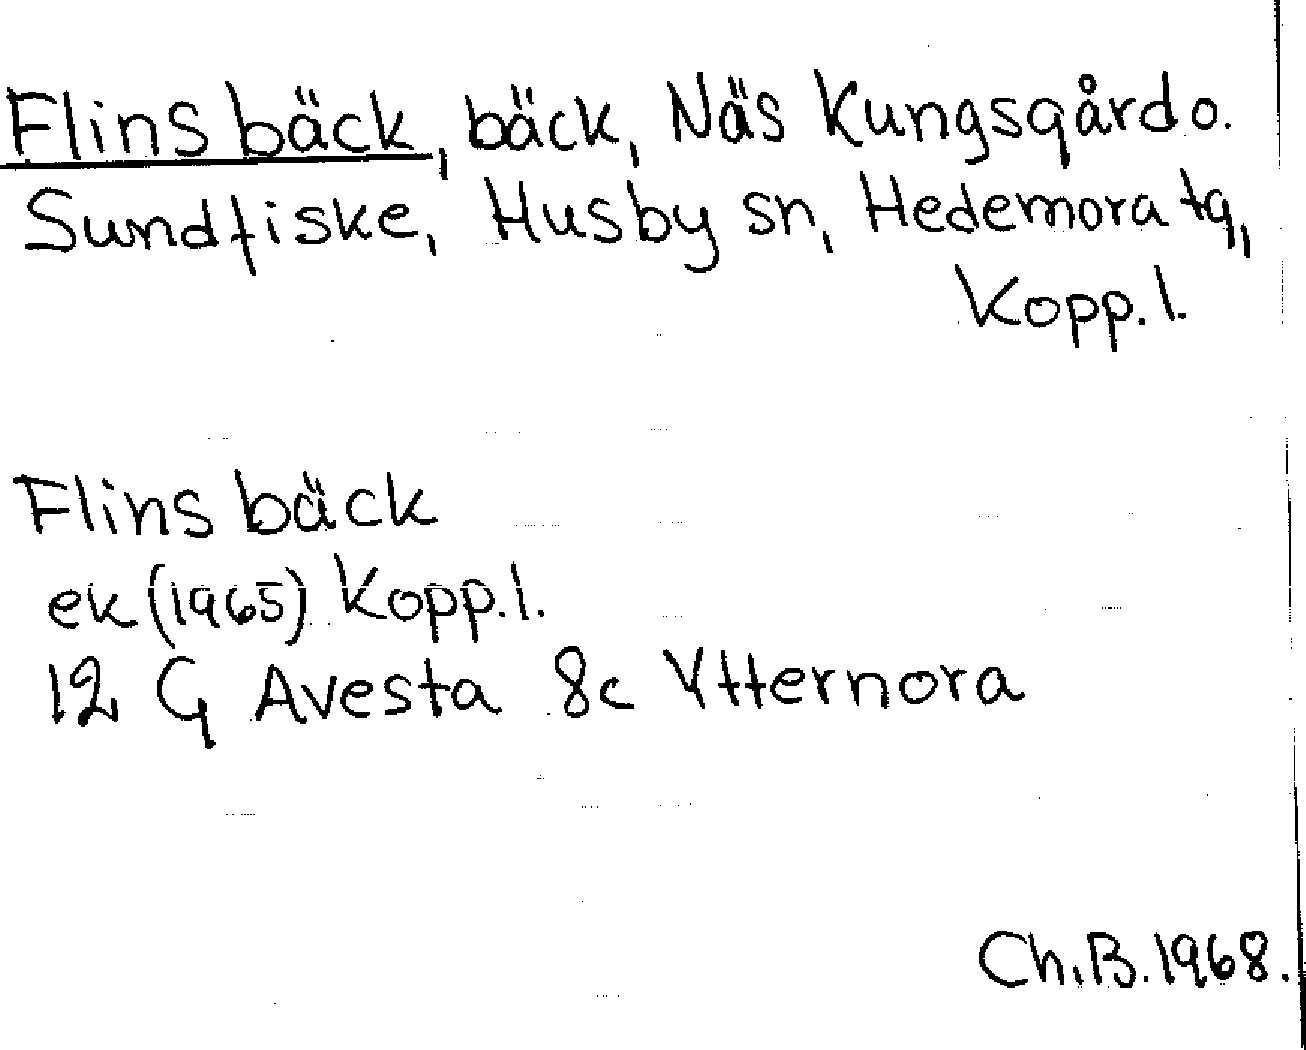 Flins bäck, bäck, Näs Kungsgård o.
Sundfiske, Husby sn, Hedemora tg,
Kopp. l.
Flins bäck
ek (1965) Kopp. l.
12 G Avesta 8c Ytternora
Ch. B. 1968.